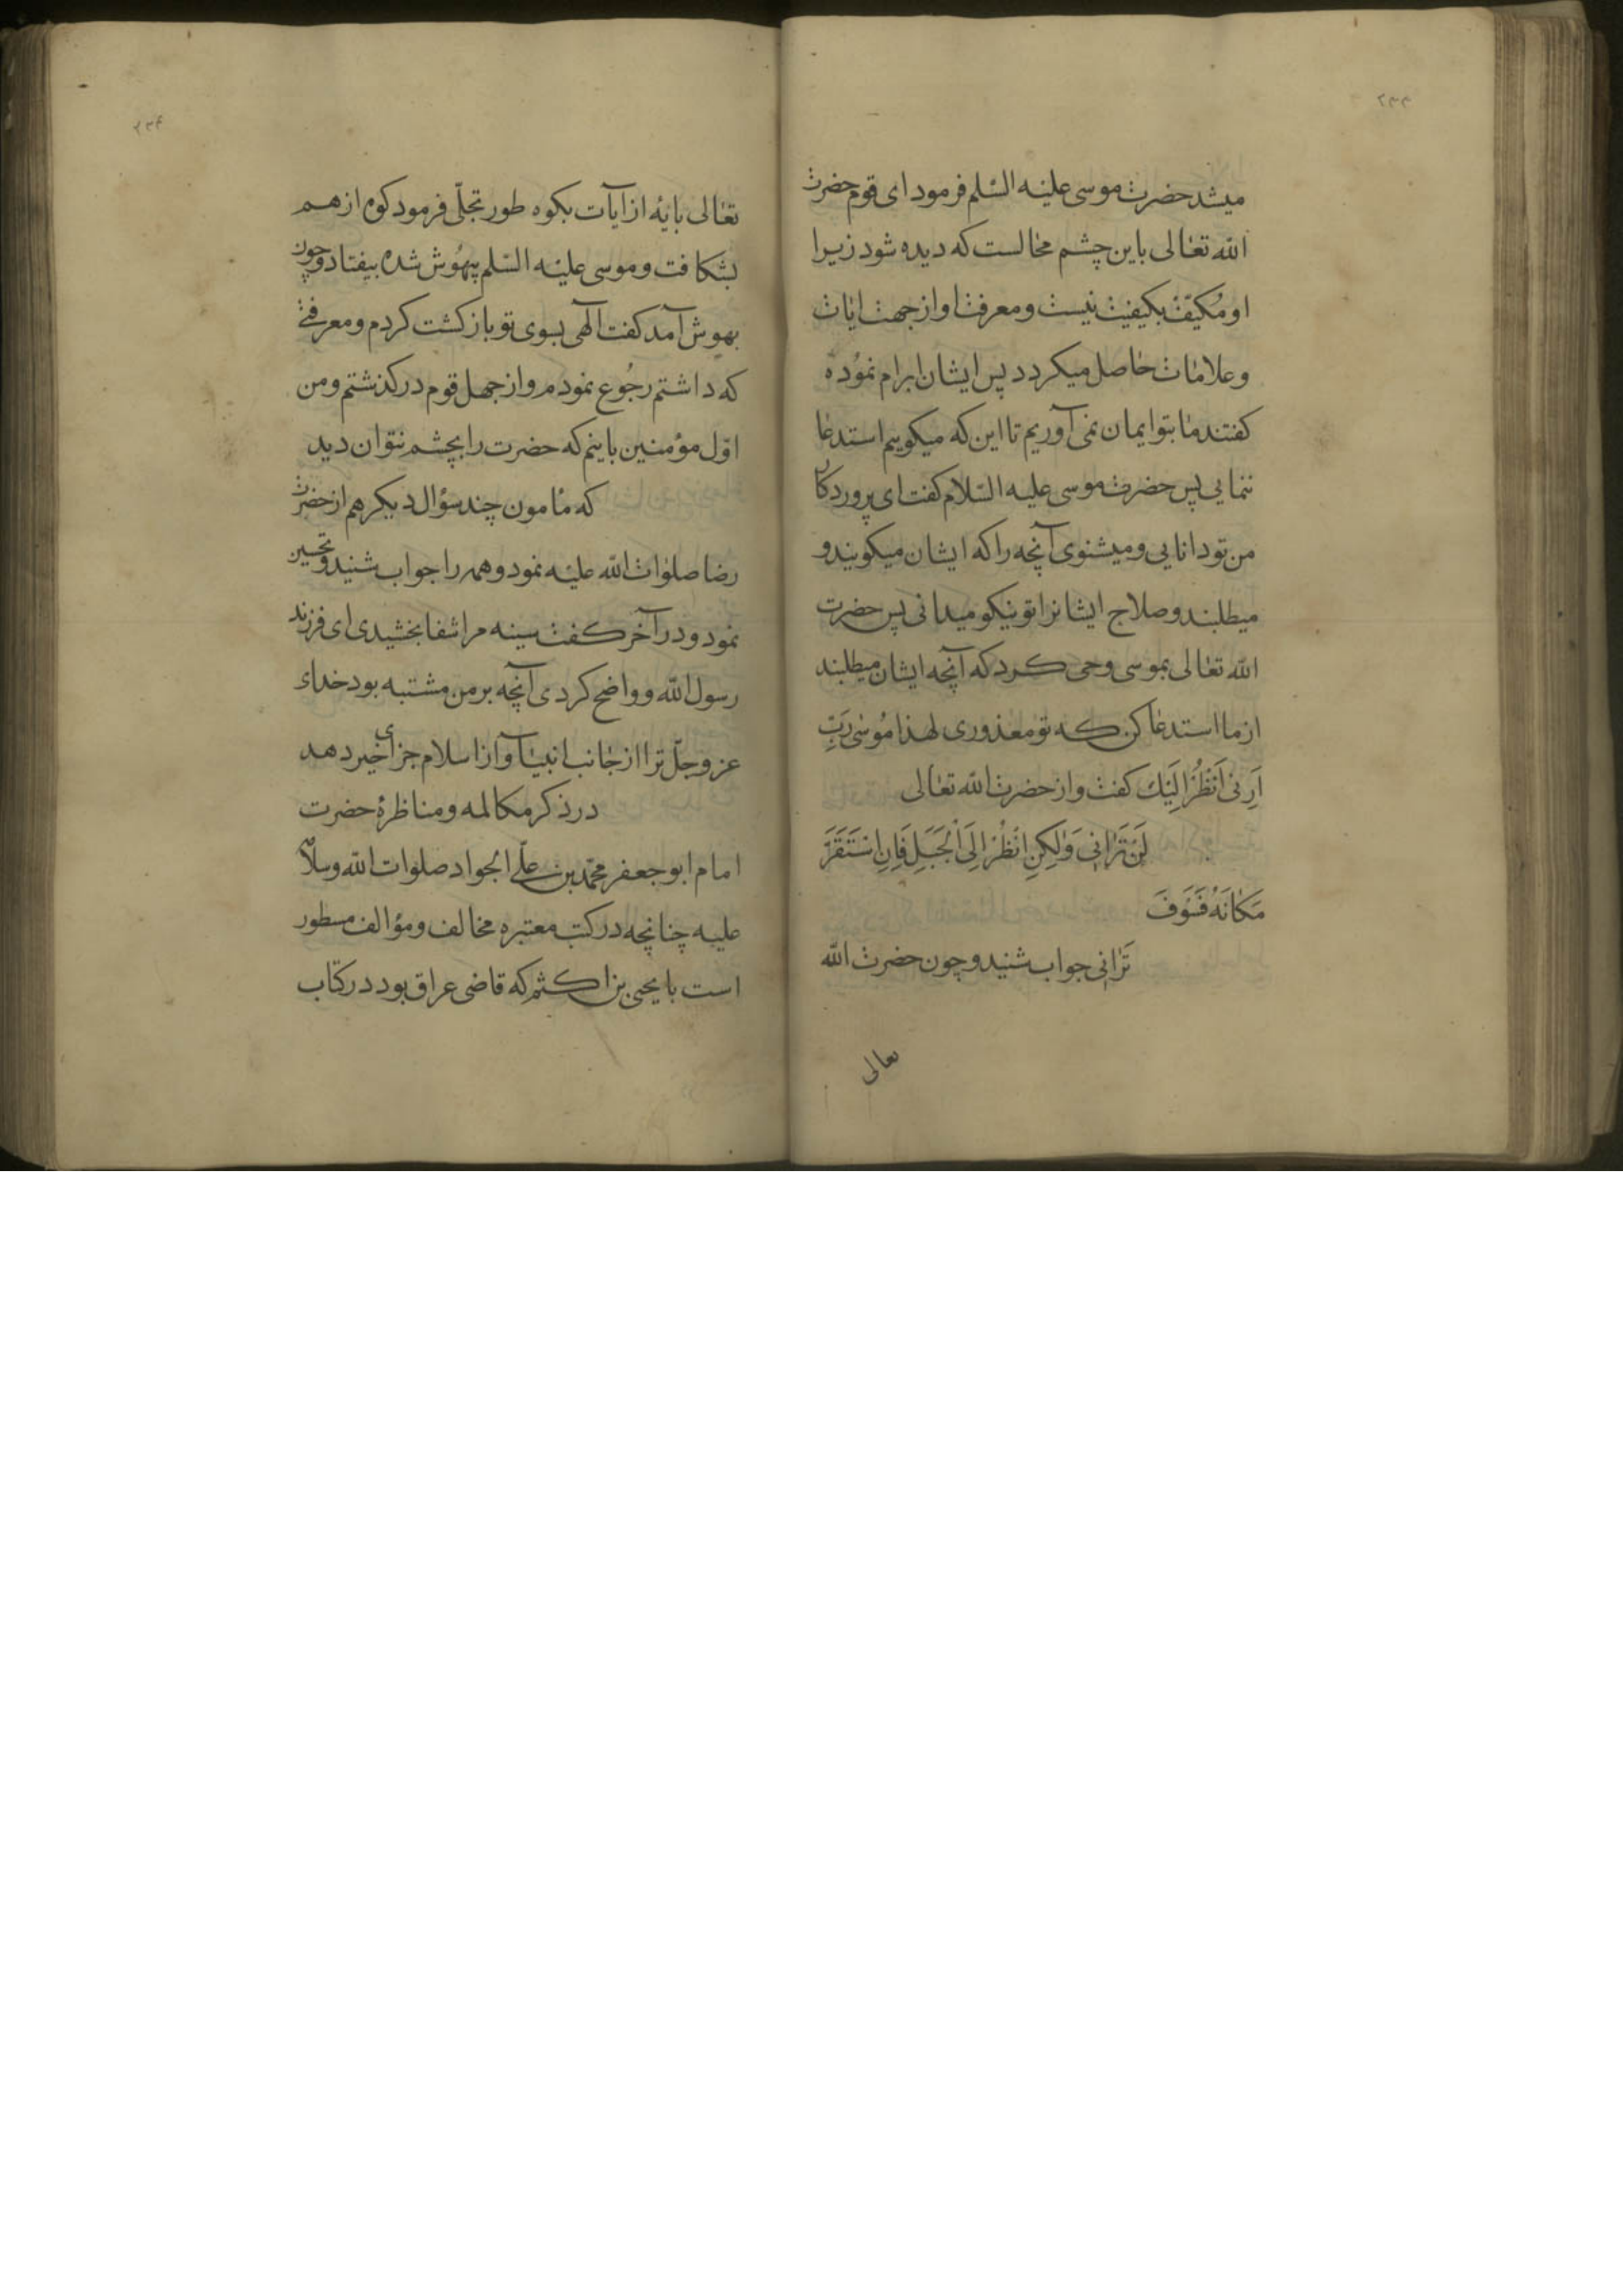 ۲۳۳
میشد حضرت موسی علیه السّلم فرمود ای قوم حضرت
الله تعالی باین چشم محالست که دیده شود زیرا
او مُکیّف بکیفیت نیست و معرفت او از جهت ایات
و علامات حاصل میکردد پس ایشان ابرام نموده
کفتند ما بتو ایمان نمی آوریم تا این که میکوییم استدعا
ننمایی پس حضرت موسی علیه السّلام کفت ای پروردکار
من تو دانایی و میشنوی آنچه را که ایشان میکویند و
میطلبند و صلاح ایشانرا تو نیکو میدانی پس حضرت
الله تعالی بموسی وحی کرد که آنچه ایشان میطلبند
از ما استدعا کن که تو معذوری لهذا مُوسٰی رَبِّ
اَرِنی اَنْظُرْ اِلَیْكَ کفت و از حضرت الله تعالی
لَنْ تَرٰانی وَلٰکِنِ انْظُرْ اِلَی الْجَبَلِ فَاِنِ اسْتَقَرَّ
مَکٰانَهُ فَسَوَفَ
تَرٰانی جواب شنید و چون حضرت الله
تعالی
۲۳۴
تعالی بایهٔ از آیات بکوه طور تجلّی فرمود کوه از هم
بشکافت و موسی علیه السّلم بیهُوش شده بیفتاد و چون
بهوش آمد کفت الٓهی بسوی تو باز کشت کردم و معرفتی
که داشتم رجُوع نمودم و از جهل قوم در کذشتم و من
اوّل مؤمنین باینم که حضرت را بچشم نتوان دید
که مٔامون چند سؤال دیکر هم از حضرت
رضا صلوات الله علیه نمود و همه را جواب شنید و تحسین
نمود و در آخر کفت سینه مرا شفا بخشیدی ای فرزند
رسول الله و واضح کردی آنچه بر من مشتبه بود خدای
عز و جلّ ترا از جانب انبیآ و از اسلام جزای خیر دهد
در ذکر مکالمه و مناظرهٔ حضرت
امام ابو جعفر محمّد بن علّی الجواد صلوات الله و سلامه
علیه چنانچه در کتب معتبره مخالف و مؤالف مسطور
است با یحیی بن اکثم که قاضی عراق بود در کتاب